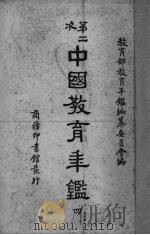 教育部教育年鑑編纂委員會編
第二次
中國教育年鑑
四
商務印書館發行